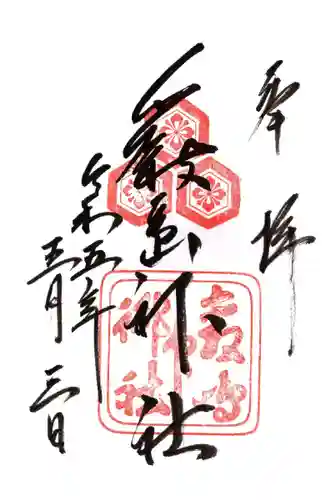 奉拝
厳島神社
令和五年
五月三日
嚴島
神社